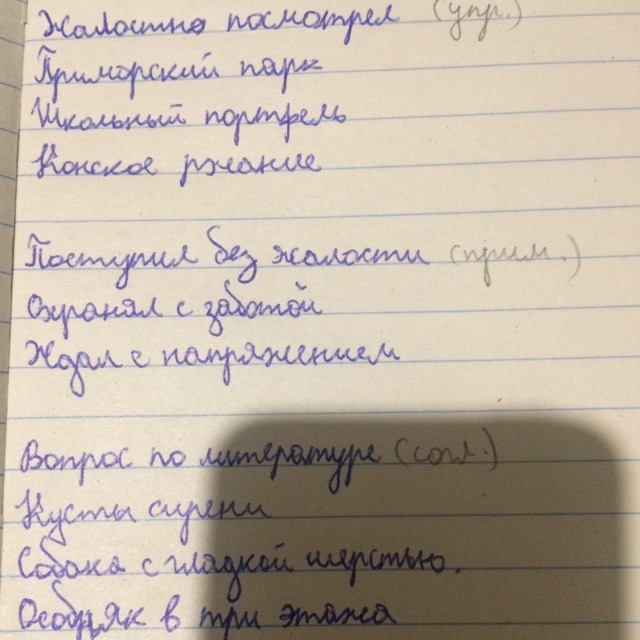 Жалостно посмотрел (упр.)
Приморский парк
Школьный портфель
Конское ржание
Поступил без жалости (прим.)
Охранял с заботой
Ждал с напряжением
Вопрос по литературе (согл.)
Кусты сирени
Собака с гладкой шерстью.
Особняк в три этажа